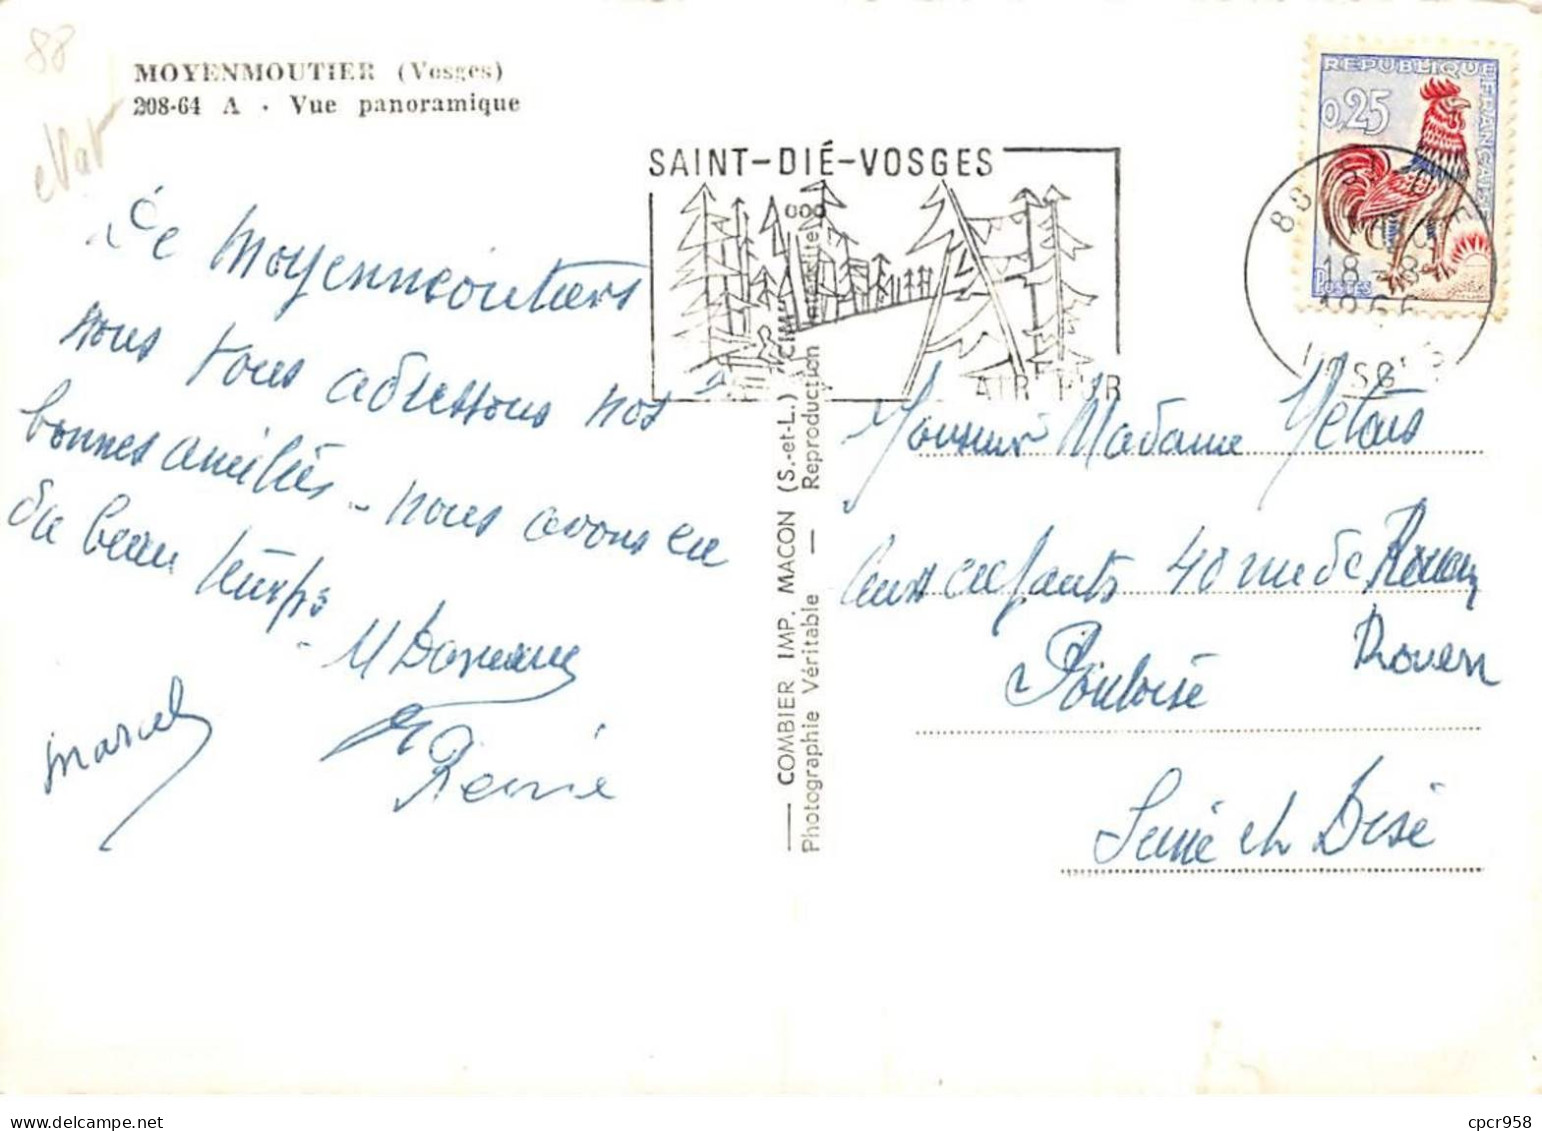 88
MOYENMOUTIER (Vosges)
208-64 A . Vue panoramique
SAINT-DIÉ-VOSGES
AIR PUR
REPUBLIQUE FRANÇAISE
0,25
POSTES
88 ST DIE
18-8
1966
VOSGES
De Moyenmoutiers
nous vous adressons nos
bonnes amitiés - nous avons eu
du beau temps -
Marcel
Renée
COMBIER IMP. MACON (S.-et-L.) CIM
Photographie Véritable — Reproduction interdite
Monsieur Madame Métais
leurs enfants 40 rue de Rouen
Rouen
Pontoise
Seine et Oise
cpcr958